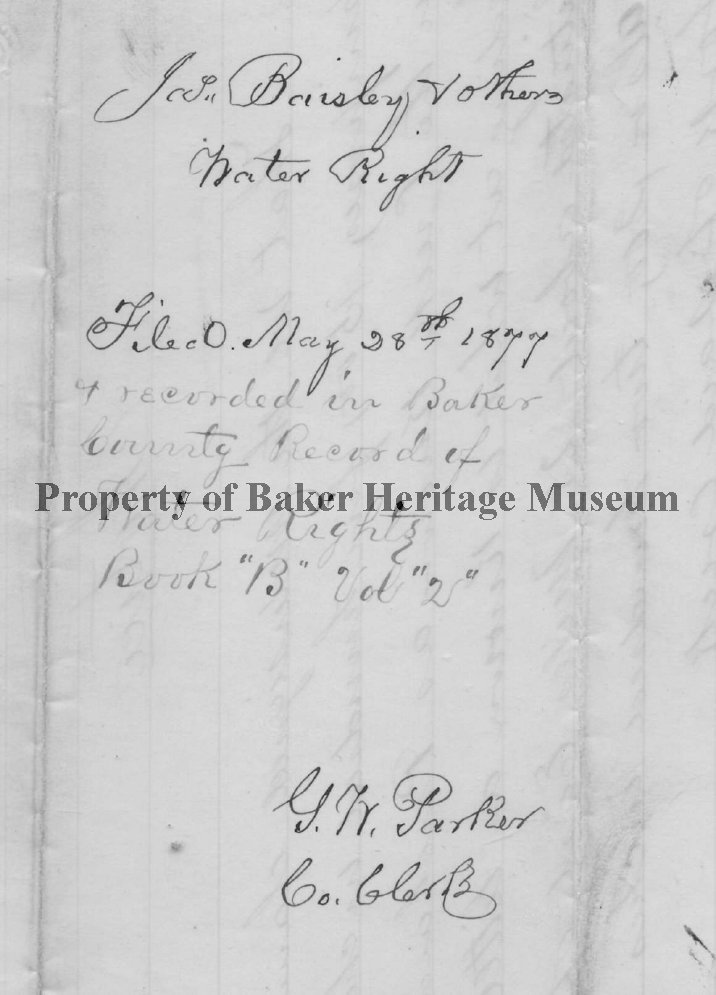 Jas. Baisley & others
Water Right
Filed. May 28th 1877
& recorded in Baker
County Record of
Property of Baker Heritage Museum
Water Rights
Book "B" Vol "2"
G. W. Parker
Co. Clerk